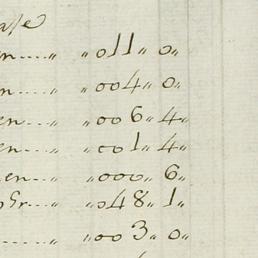 n.... „ „ 011 „ 0 „
n.... „ „ 004 „ 0 „
en.... „ „ 006 „ 4 „
en.... „ „ 001 „ 4 „
en.... „ „ 000 „ 6 „
„ „ 048 „ 1 „
..... „ „ 003 „ 0 „